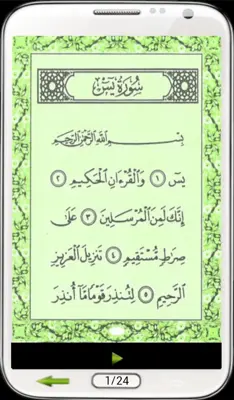 سُورَةُ يسٓ
بِسْمِ اللَّهِ الرَّحْمَٰنِ الرَّحِيمِ
يسٓ ١ وَالْقُرْءَانِ الْحَكِيمِ ٢
إِنَّكَ لَمِنَ الْمُرْسَلِينَ ٣ عَلَىٰ
صِرَٰطٍ مُّسْتَقِيمٍ ٤ تَنزِيلَ الْعَزِيزِ
الرَّحِيمِ ٥ لِتُنذِرَ قَوْمًا مَّا أُنذِرَ
1/24